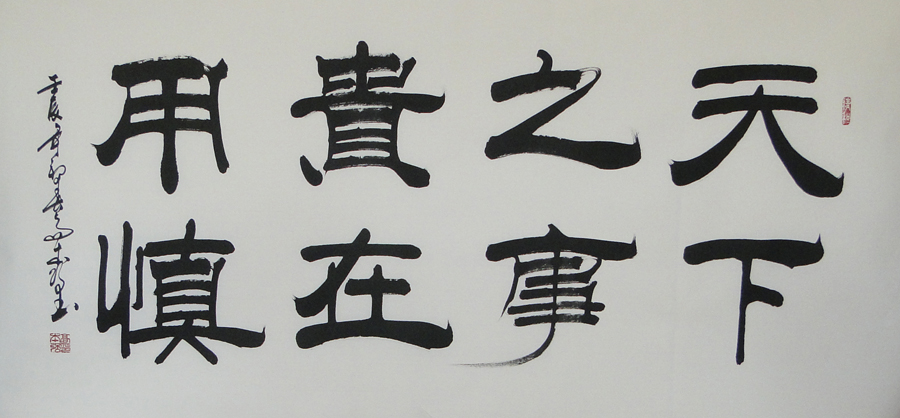 天下
之事
貴在
用慎